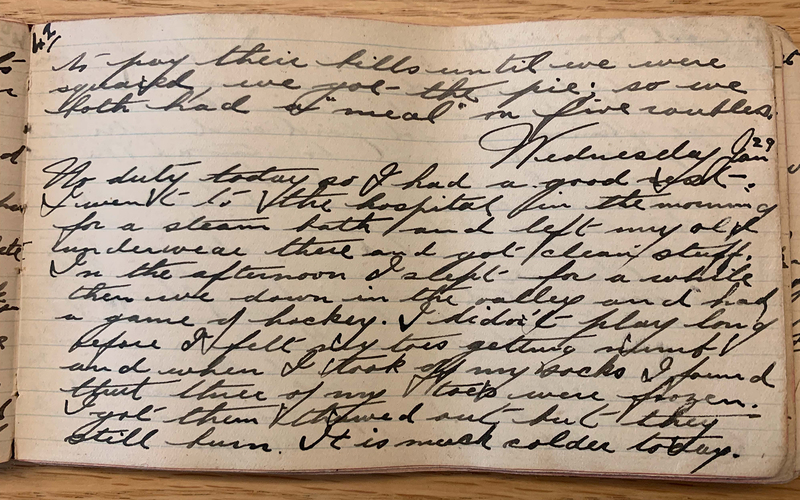 42
to pay their bills until we were
squared, we got the pie; so we
both had a "meal" on five roubles.
Wednesday Jan 29
No duty today so I had a good rest.
I went to the hospital in the morning
for a steam bath and left my old
underwear there and got clean stuff.
In the afternoon I slept for a while
then we down in the valley and had
a game of hockey. I didn't play long
before I felt my toes getting numb
and when I took off my socks I found
that three of my toes were frozen.
I got them thawed out but they
still burn. It is much colder today.